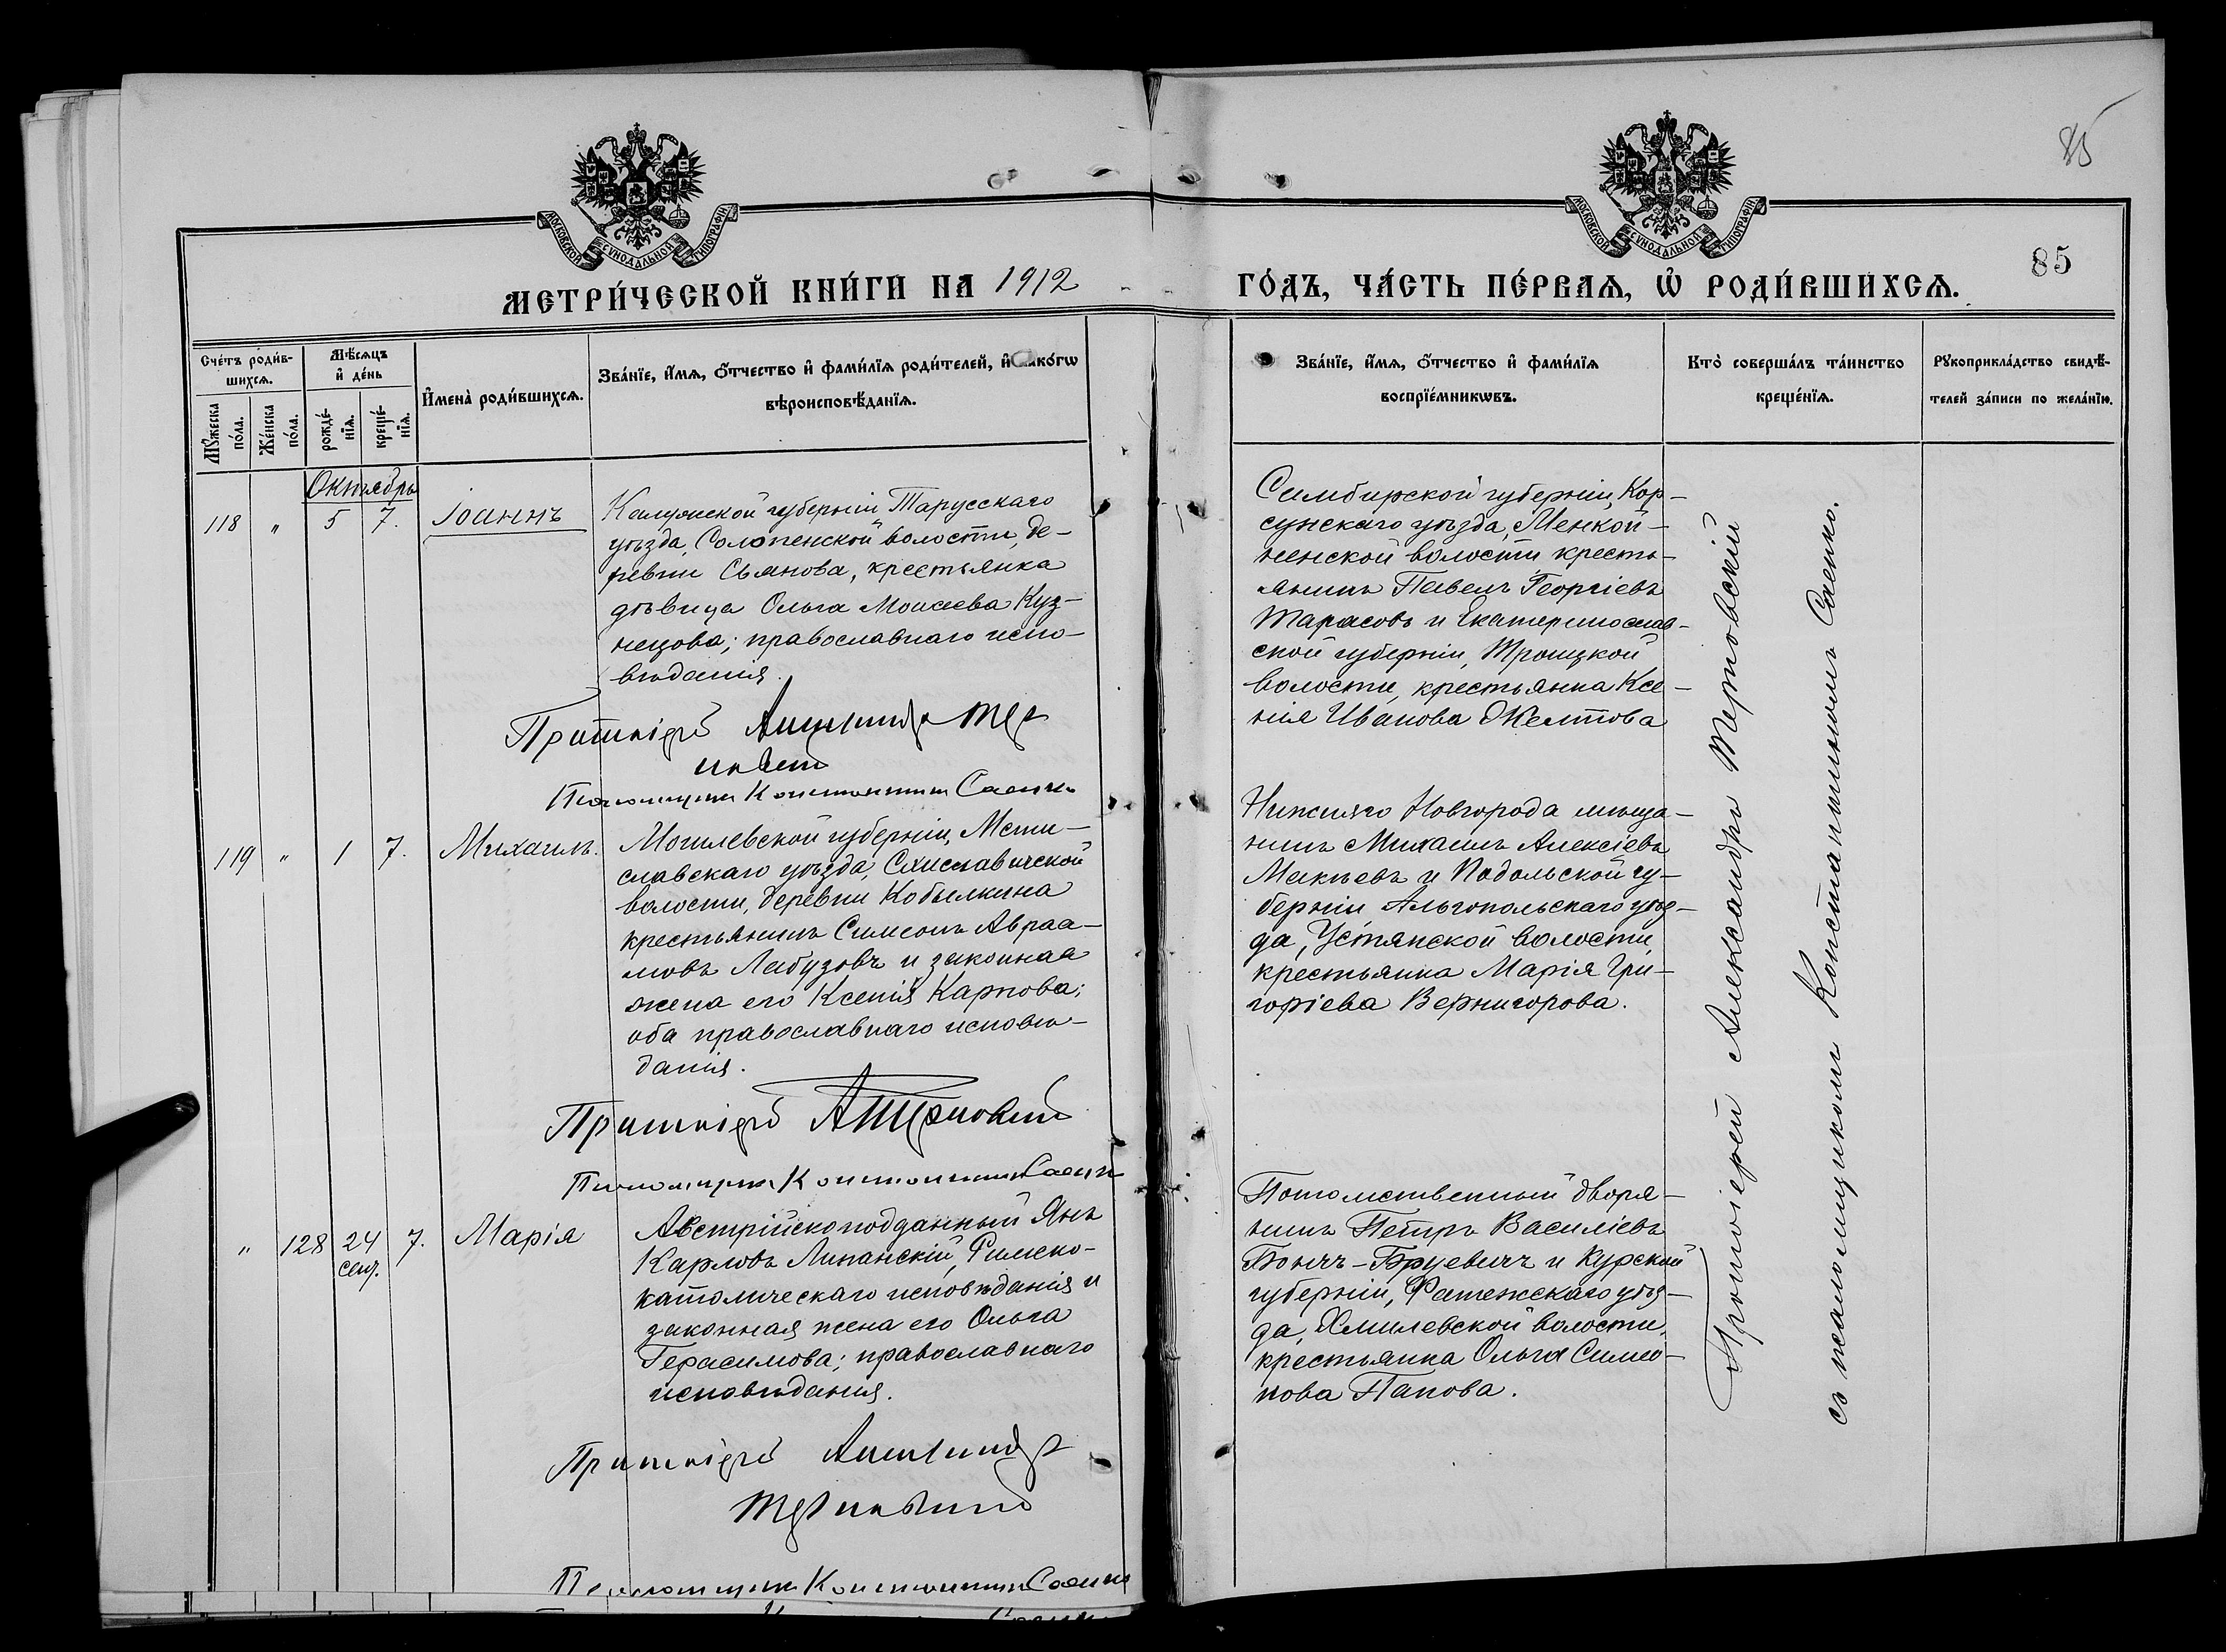 85
МОСКОВСКОЙ СѴНОДАЛЬНОЙ ТИПОГРАФІИ
МОСКОВСКОЙ СѴНОДАЛЬНОЙ ТИПОГРАФІИ
85
МЕТРИ́ЧЕСКОЙ КНИ́ГИ НА 1912
ГО́ДЪ, ЧА́СТЬ ПЕ́РВАѦ, Ѡ҆ РОДИ́ВШИХСѦ.
Сче́тъ роди́в-
шихсѧ.
Мѣ́сѧцъ
и҆ де́нь
Мꙋ́жеска
по́ла.
Же́нска
по́ла.
рожде́-
нїѧ.
креще́-
нїѧ.
И҆мена̀ роди́вшихсѧ.
Зва́нїе, и҆́мѧ, ѻ҆́тчество и҆ фами́лїѧ роди́телей, и҆ како́гѡ
вѣроисповѣ́данїѧ.
Зва́нїе, и҆́мѧ, ѻ҆́тчество и҆ фами́лїѧ
воспрїе́мникѡвъ.
Кто̀ соверша́лъ та́инство
креще́нїѧ.
Рꙋкоприкла́дство свидѣ́-
телей за́писи по жела́нїю.
Октябрь
118 " 5 7. Іоаннъ
Калужской губерніи Тарусскаго
уѣзда, Солопенской волости, де-
ревни Сьянова, крестьянка
дѣвица Ольга Моисеева Куз-
нецова; православнаго испо-
вѣданія.
Протоіерей Александръ Тер
новскій
Псаломщикъ Константинъ Саенко
Симбирской губерніи, Кор-
сунскаго уѣзда, Менкой-
ненской волости кресть-
янинъ Павелъ Георгіевъ
Тарасовъ и Екатеринослав-
ской губерніи, Троицкой
волости, крестьянка Ксе-
нія Иванова Желтова
119 " 1 7. Михаилъ.
Могилевской губерніи, Мсти-
славскаго уѣзда, Схиславичской
волости, деревни Кобылкина
крестьянинъ Симеонъ Авраа-
мовъ Лабузовъ и законная
жена его Ксенія Карпова;
оба православнаго исповѣ-
данія.
Протоіерей А Терновскій
Псаломщикъ Константинъ Саенко
Нижняго Новгорода мѣща-
нинъ Михаилъ Алексіевъ
Макѣевъ и Подольской гу-
берніи Ольгопольскаго уѣз-
да, Устянской волости,
крестьянка Марія Гри-
горіева Вернигорова.
" 128 24 сент. 7. Марія
Австрійскоподданный Янъ
Карловъ Липанскій, Римско-
католическаго исповѣданія и
законная жена его Ольга
Герасимова; православнаго
исповѣданія.
Протоіерей Александръ
Терновскій
Псаломщикъ Константинъ Саенко
Потомственный дворя-
нинъ Петръ Василіевъ
Бончъ-Бруевичъ и Курской
губерніи, Фатежскаго уѣз-
да, Хмилевской волости,
крестьянка Ольга Симео-
нова Папова.
Протоіерей Александръ Терновскій
съ псаломщикомъ Константиномъ Саенко.